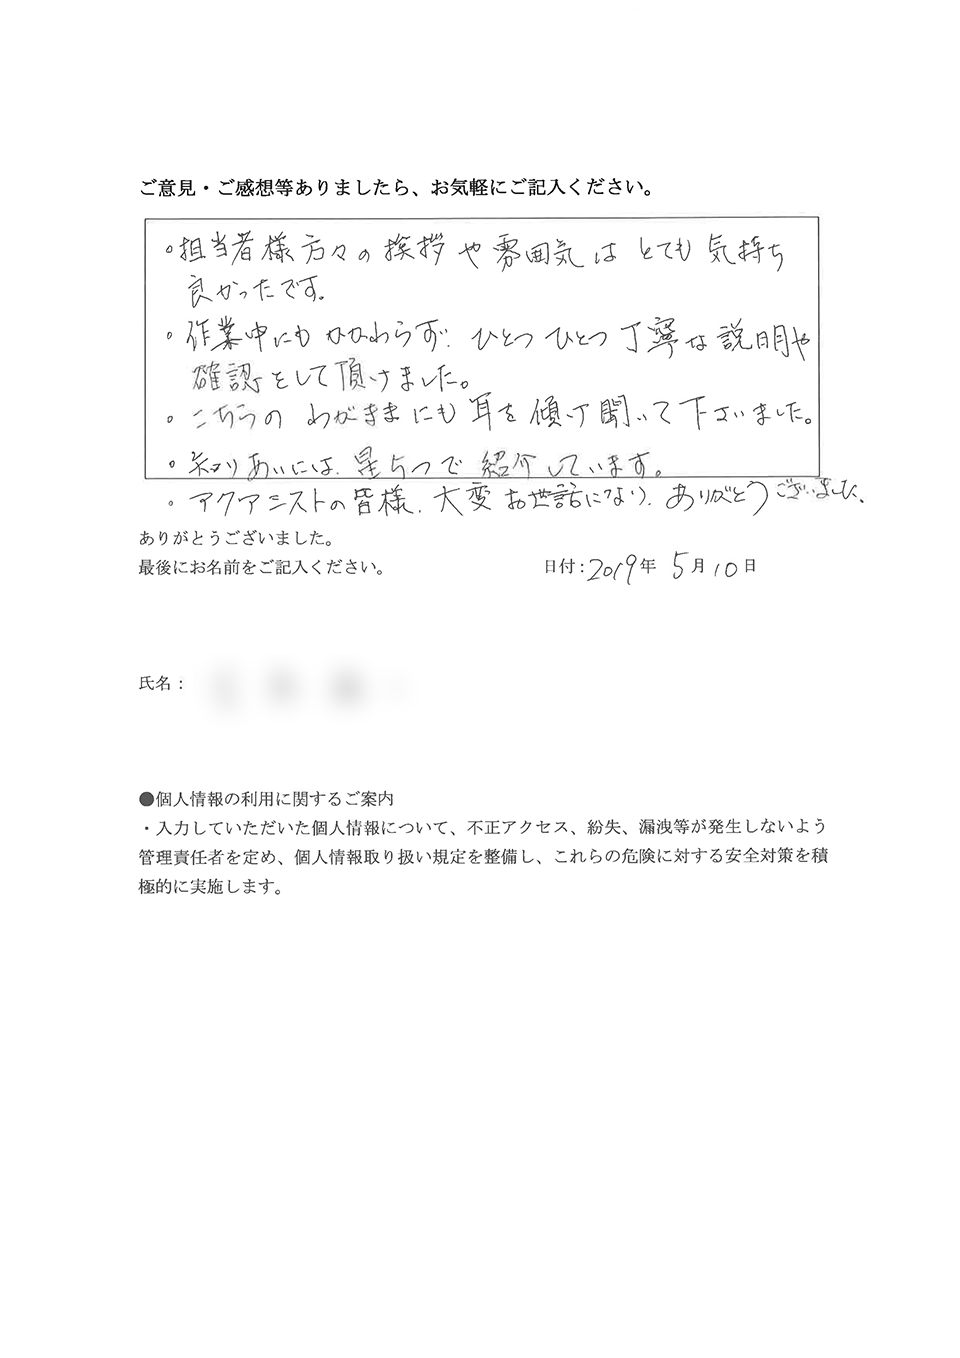 ご意見・ご感想等ありましたら、お気軽にご記入ください。
。担当者様方々の挨拶や雰囲気はとても気持ち
良かったです。
。作業中にもかかわらず、ひとつひとつ丁寧な説明や
確認をして頂けました。
。こちらのわがままにも耳を傾け聞いて下さいました。
。知りあいには、星5つで紹介しています。
。アクアニストの皆様、大変お世話になり、ありがとうございました、
ありがとうございました。
最後にお名前をご記入ください。 日付:2019年 5月10日
氏名:
●個人情報の利用に関するご案内
・入力していただいた個人情報について、不正アクセス、紛失、漏洩等が発生しないよう
管理責任者を定め、個人情報取り扱い規定を整備し、これらの危険に対する安全対策を積
極的に実施します。